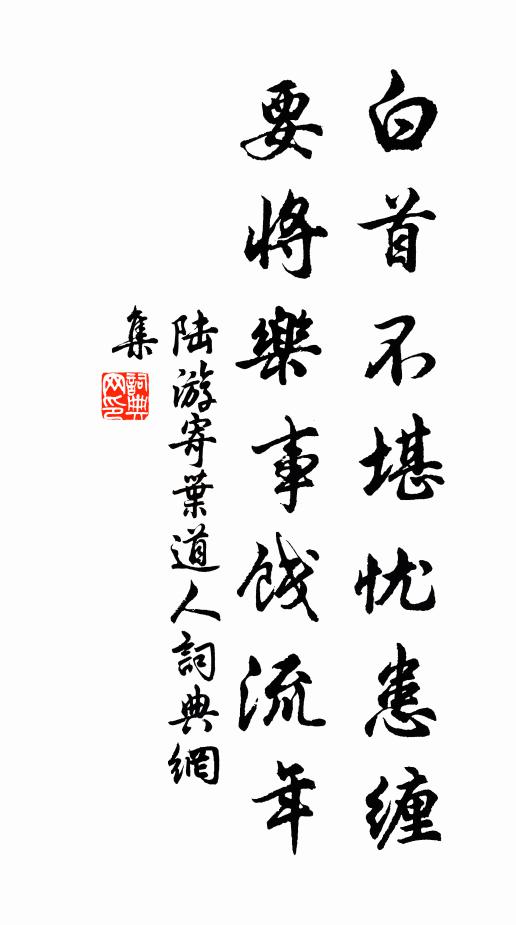 白首不堪忧患缠
要将樂事饯流年
陆游寄葉道人詞典網
集
詞典
网印